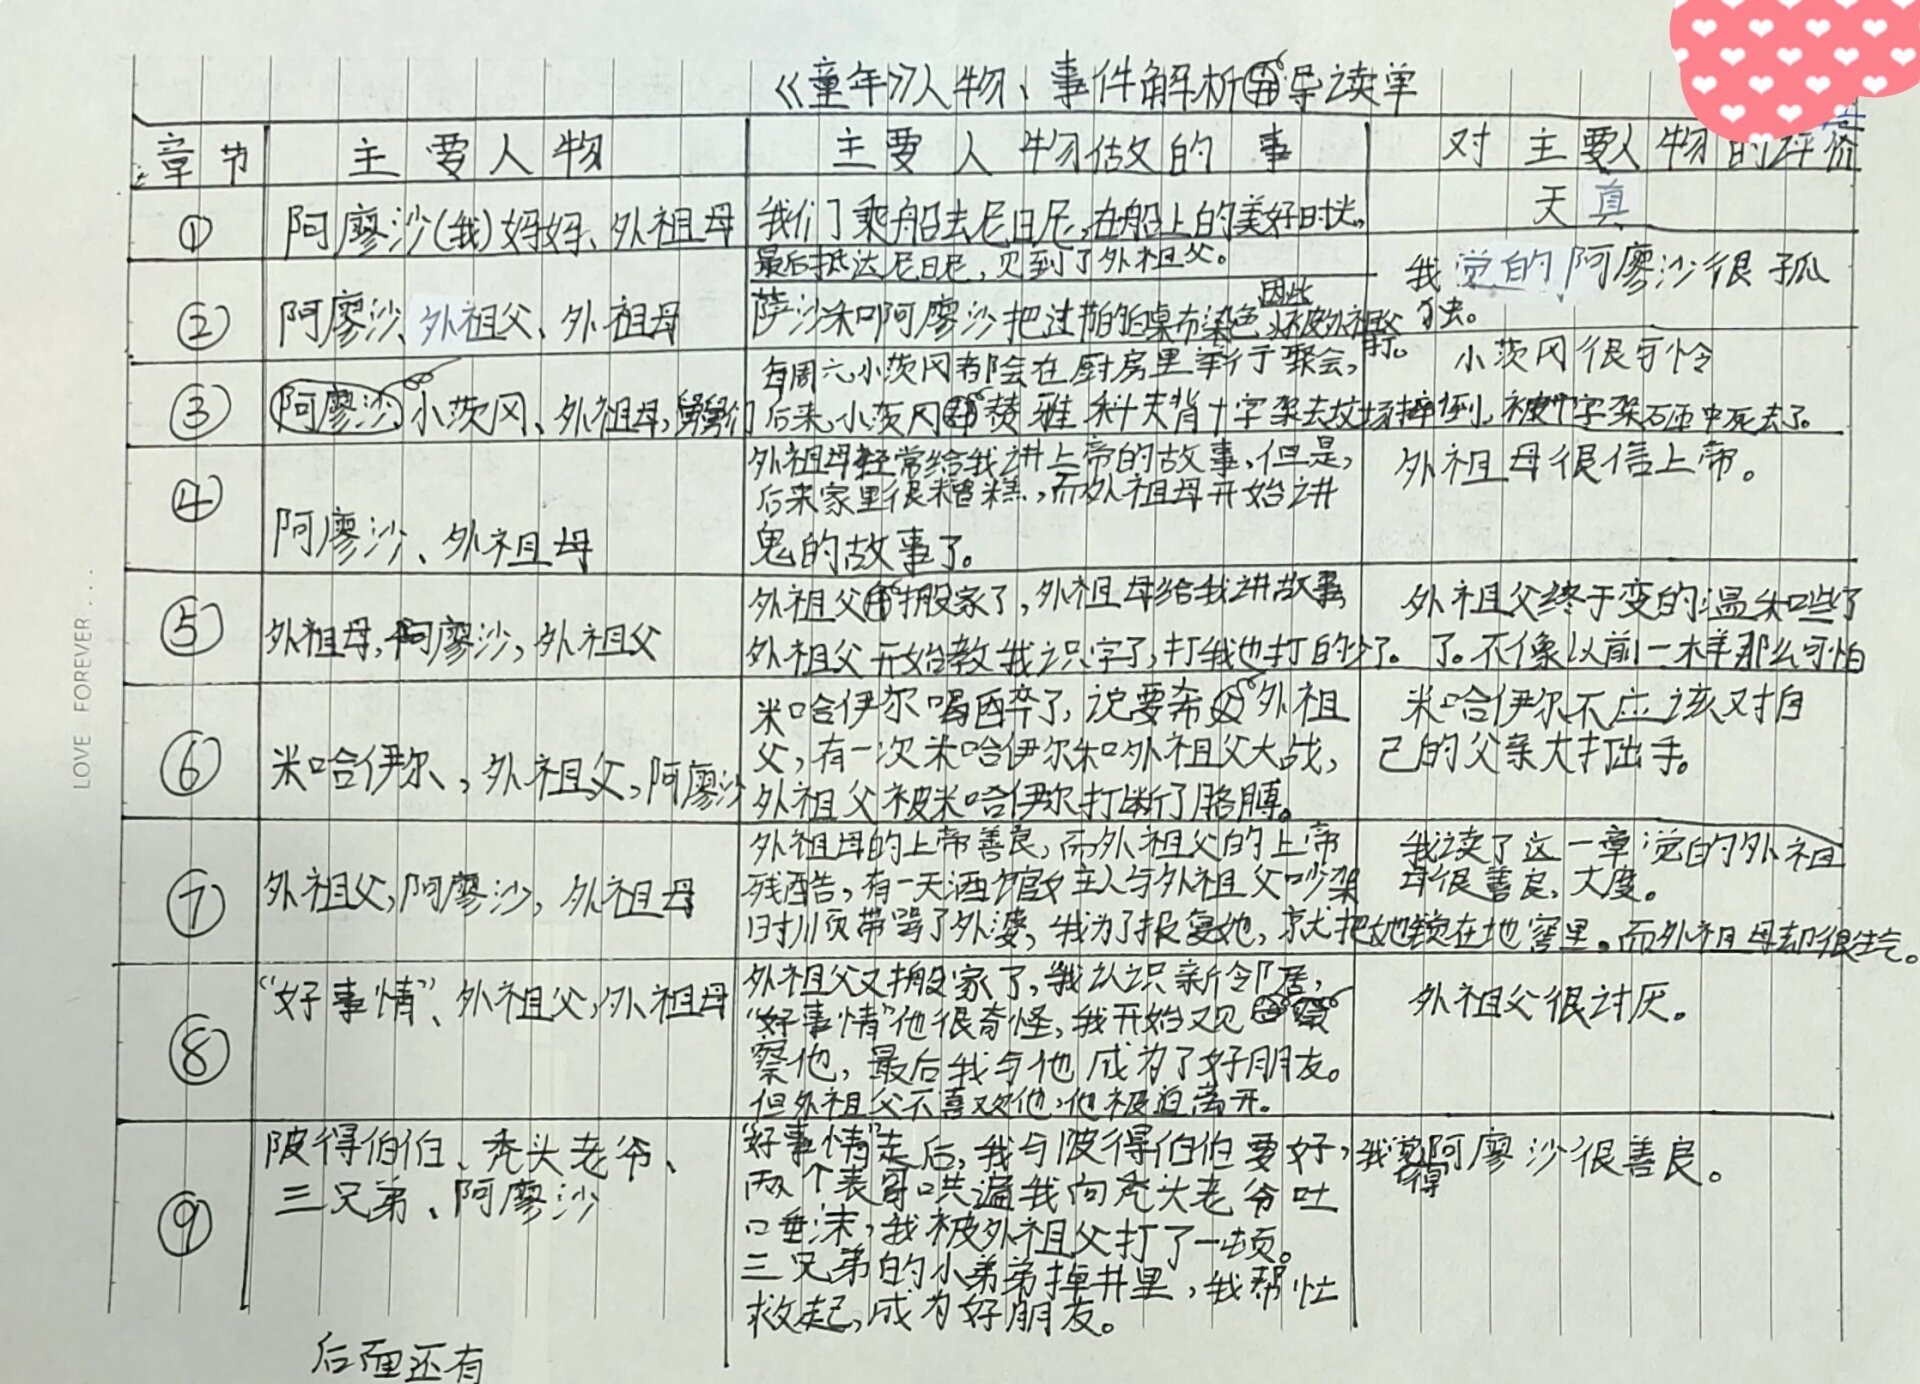 《童年》人物、事件解析导读单
章节 主要人物 主要人物做的事 对主要人物的评价
① 阿廖沙(我)妈妈、外祖母 我们了乘船去尼日尼,在船上的美好时光,
最后抵达尼日尼,见到了外祖父。
天真
② 阿廖沙、外祖父、外祖母 萨沙和阿廖沙把过节的桌布染色,因此被外祖父打。
我觉的阿廖沙很孤
独。
③ 阿廖沙、小茨冈、外祖母,舅舅们 每周六小茨冈都会在厨房里举行聚会,
后来,小茨冈帮赞雅科夫背十字架去坟场摔倒,被十字架砸中死去了。
小茨冈很可怜
④ 阿廖沙、外祖母 外祖母经常给我讲上帝的故事,但是,
后来家里很糟糕,而外祖母开始讲
鬼的故事了。
外祖母很信上帝。
⑤ 外祖母,阿廖沙,外祖父 外祖父搬家了,外祖母给我讲故事,
外祖父开始教我识字了,打我也打的少了。
外祖父终于变的温和些了
了。不像以前一样那么可怕
⑥ 米哈伊尔、,外祖父,阿廖沙 米哈伊尔喝醉了,说要杀外祖
父,有一次米哈伊尔和外祖父大战,
外祖父被米哈伊尔打断了胳膊。
米哈伊尔不应该对自
己的父亲大打出手。
⑦ 外祖父,阿廖沙,外祖母 外祖母的上帝善良,而外祖父的上帝
残酷,有一天酒馆女主人与外祖父吵架
时顺带骂了外婆,我为了报复她,就把她锁在地窖里。而外祖母却很生气。
我读了这一章觉的外祖
母很善良,大度。
⑧ “好事情”、外祖父,外祖母 外祖父又搬家了,我认识新邻居,
“好事情”他很奇怪,我开始观
察他,最后我与他成为了好朋友。
但外祖父不喜欢他,他被迫离开。
外祖父很讨厌。
⑨ 陂得伯伯、秃头老爷、
三兄弟、阿廖沙
“好事情”走后,我与陂得伯伯要好,
两个表哥哄逼我向秃头老爷吐
口垂沫,我被外祖父打了一顿。
三兄弟的小弟弟掉井里,我帮忙
救起,成为好朋友。
我觉得阿廖沙很善良。
后面还有
LOVE FOREVER...